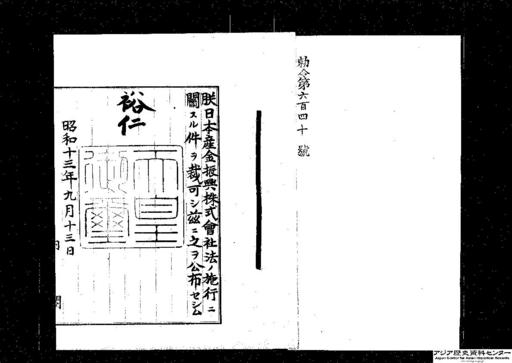 勅令第六百四十號
朕日本産金振興株式會社法ノ施行ニ
關スル件ヲ裁可シ茲ニ之ヲ公布セシム
裕仁
天皇
御璽
昭和十三年九月十三日
アジア歴史資料センター
Japan Center for Asian Historical Records